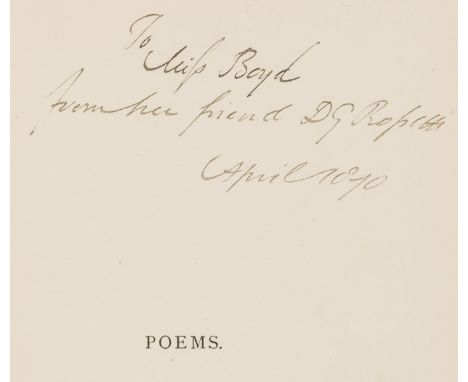 To
Miss Boyd
from her friend DG Rossetti
April 1870
POEMS.